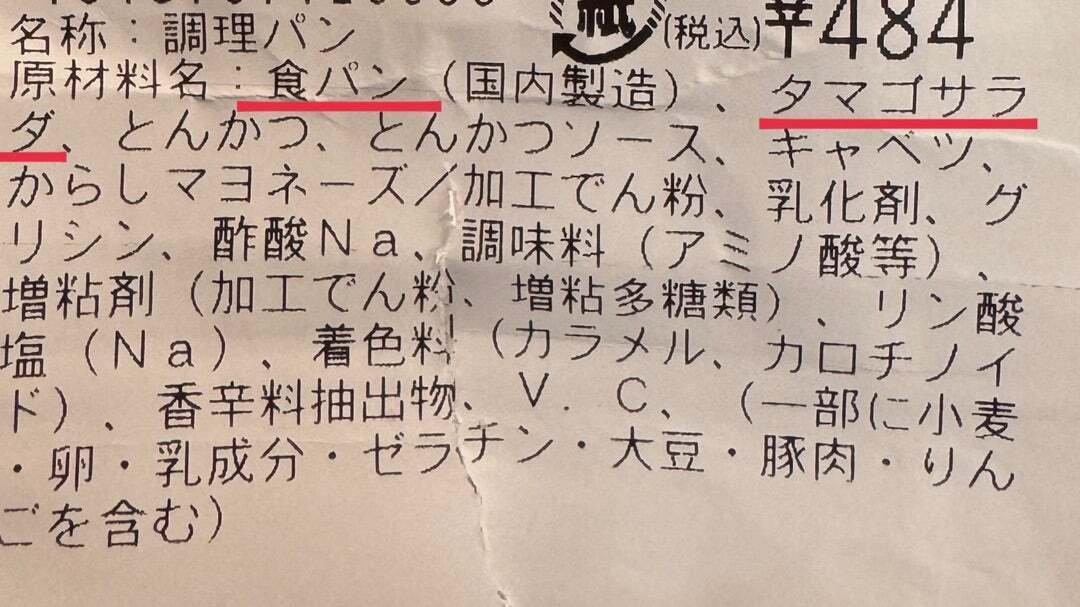 名称:調理パン
紙
(税込)¥484
原材料名:食パン(国内製造)、タマゴサラ
ダ、とんかつ、とんかつソース、キャベツ、
からしマヨネーズ/加工でん粉、乳化剤、グ
リシン、酢酸Na、調味料(アミノ酸等)、
増粘剤(加工でん粉、増粘多糖類)、リン酸
塩(Na)、着色料(カラメル、カロチノイ
ド)、香辛料抽出物、V.C、(一部に小麦
・卵・乳成分・ゼラチン・大豆・豚肉・りん
ごを含む)